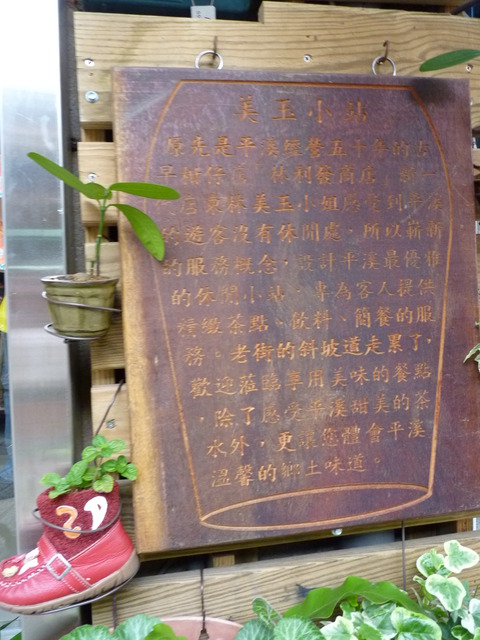 美玉小站
原先是平溪經營五十年的老
早柑仔店，休利發商店，新一
店東蘇美玉小姐感受到平溪
的遊客沒有休閒處，所以嶄新
的服務概念，設計平溪最優雅
的休閒小站，專為客人提供
精緻茶點、飲料、簡餐的服
務。老街的斜坡道走累了，
歡迎蒞臨享用美味的餐點
，除了感受平溪甜美的茶
水外，更讓您體會平溪
溫馨的鄉土味道。